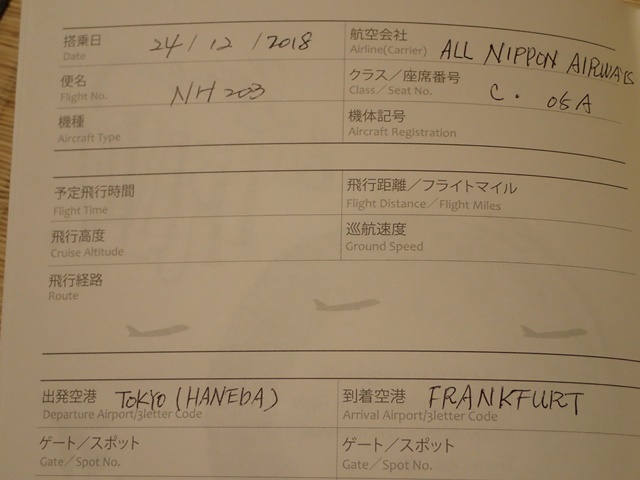 搭乗日 24 / 12 / 2018 航空会社 ALL NIPPON AIRWAYS
Date Airline(Carrier)
便名 NH 203 クラス／座席番号 C. 05A
Flight No. Class／Seat No.
機種 機体記号
Aircraft Type Aircraft Registration
予定飛行時間 飛行距離／フライトマイル
Flight Time Flight Distance／Flight Miles
飛行高度 巡航速度
Cruise Altitude Ground Speed
飛行経路
Route
出発空港 TOKYO (HANEDA) 到着空港 FRANKFURT
Departure Airport/3letter Code Arrival Airport/3letter Code
ゲート／スポット ゲート／スポット
Gate／Spot No. Gate／Spot No.